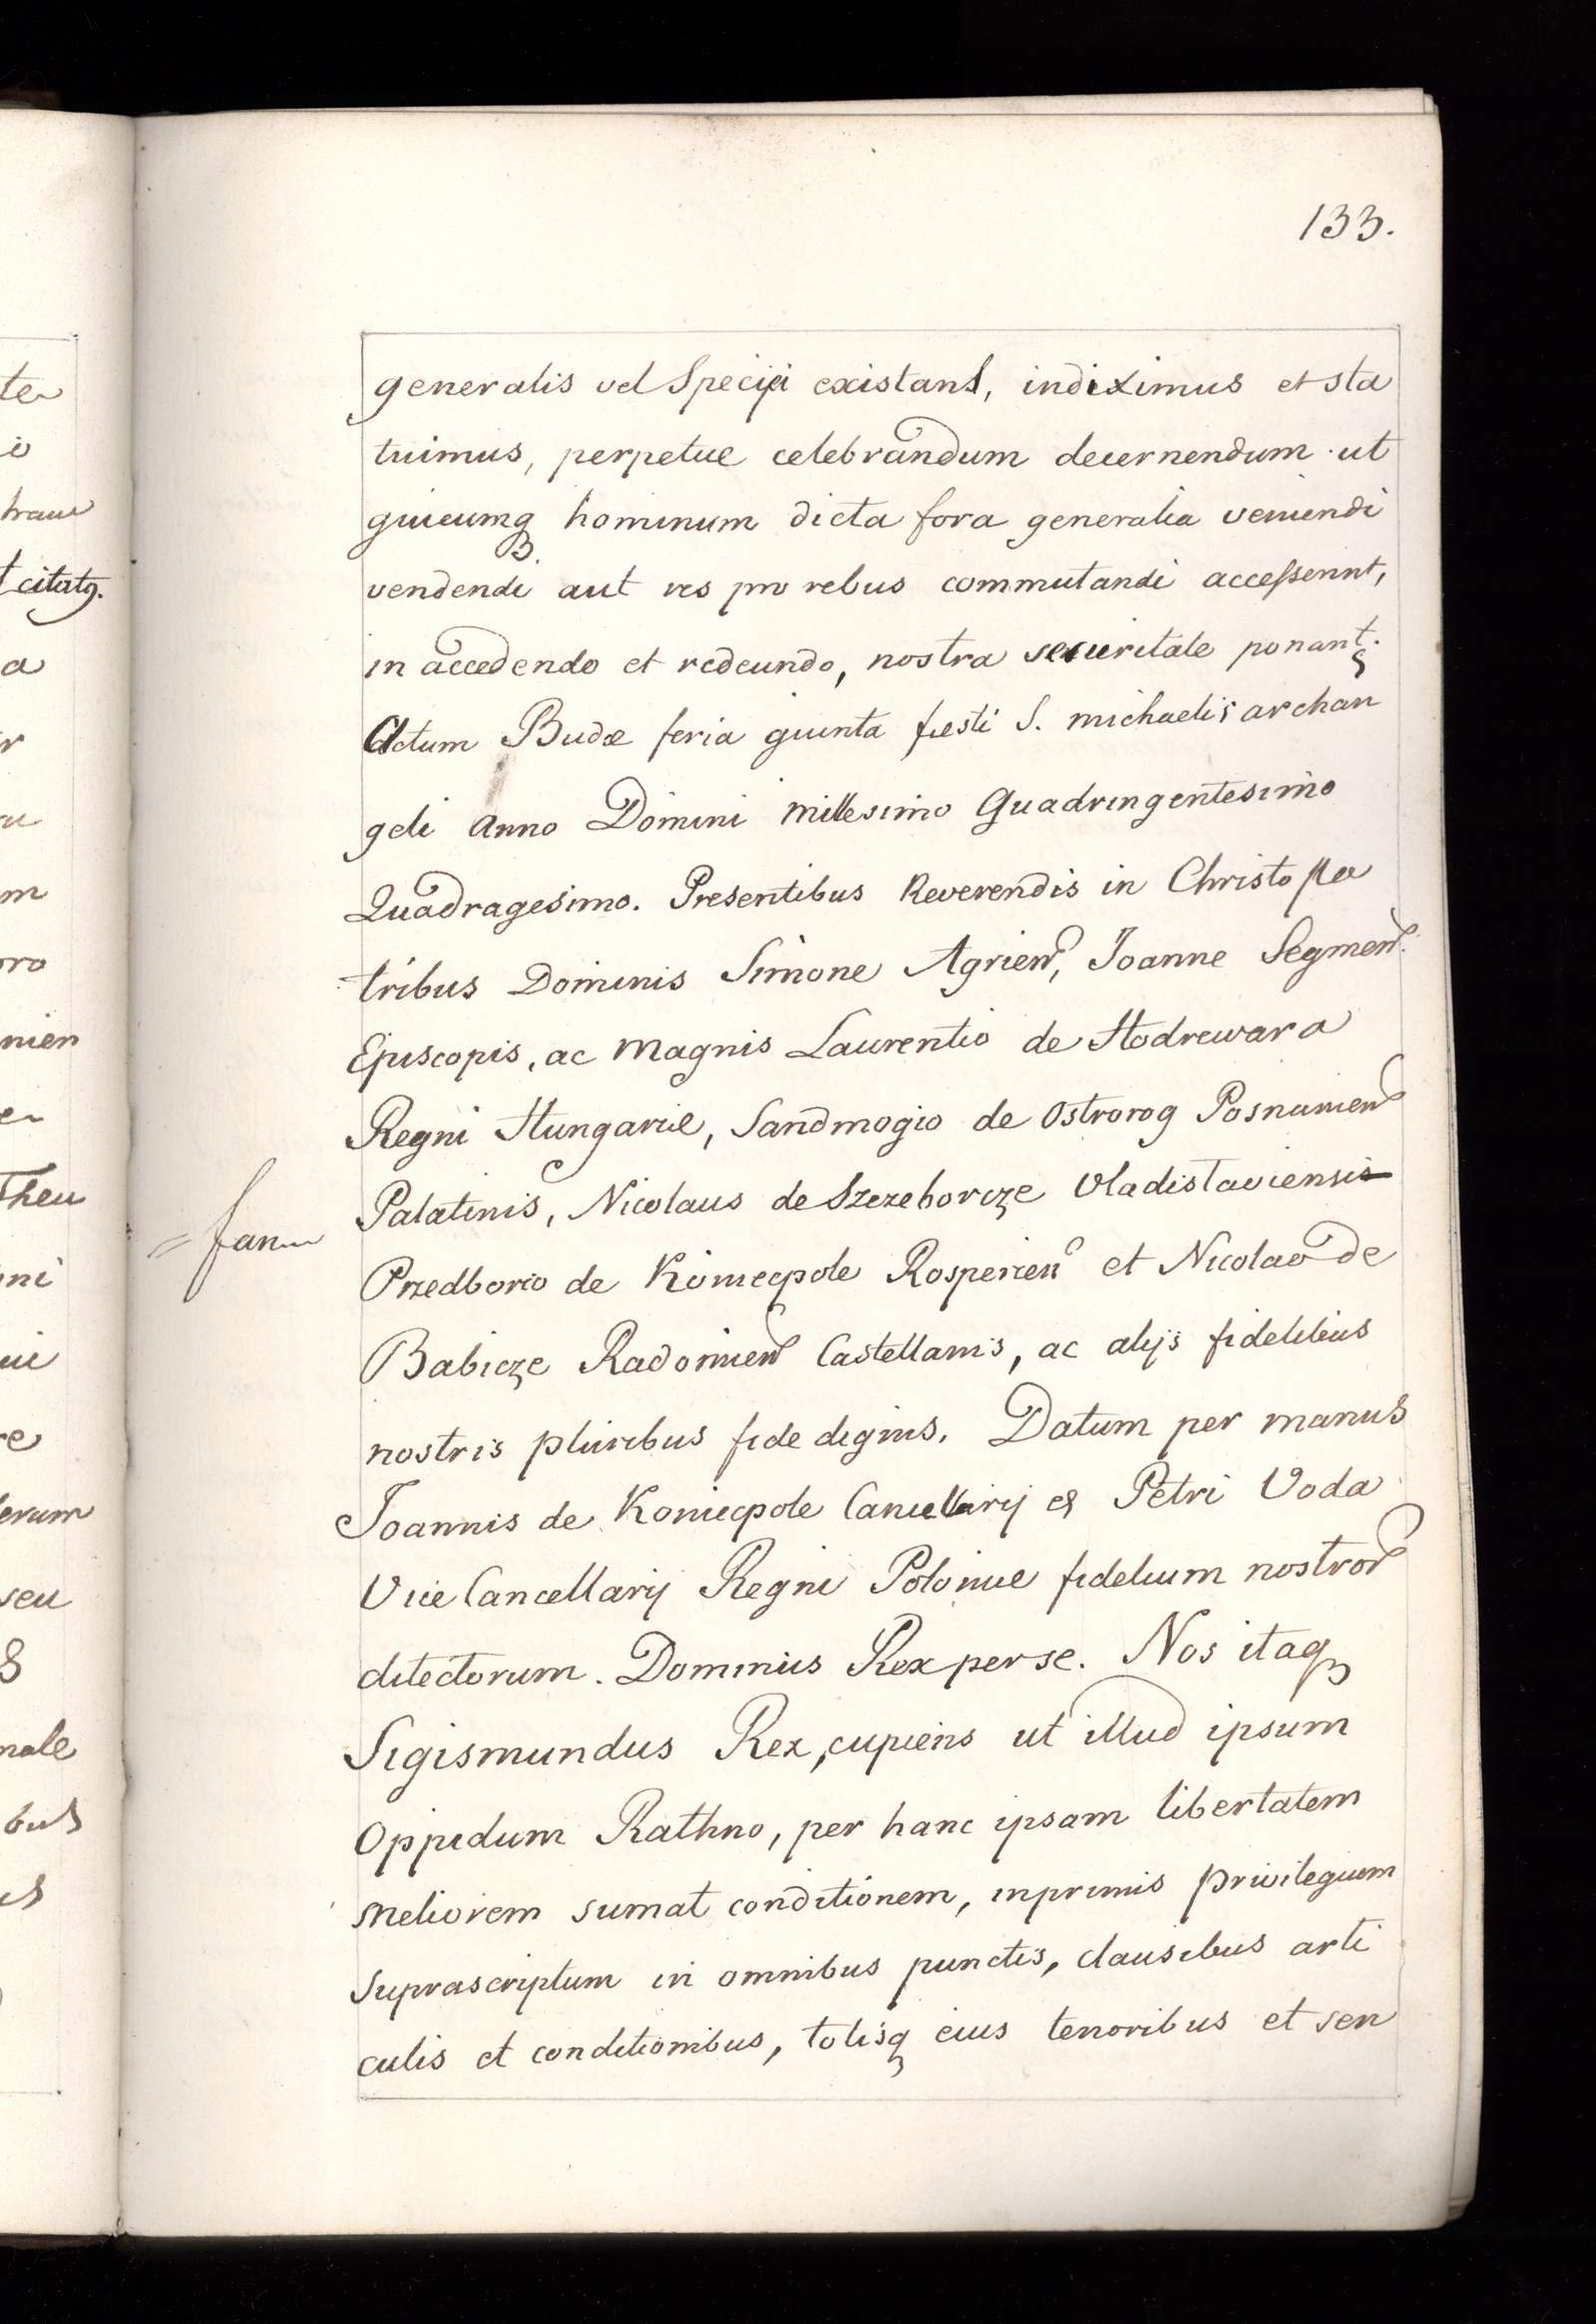 133.
generalis vel Specifi existans, indiximus et sta
tuimus, perpetue celebrandum decernendum ut
quicumq hominum dicta fora generalia veniendi
vendendi aut res pro rebus commutandi accesserint,
in accedendo et redeundo, nostra securitate ponant.
Actum Budæ feria quinta festi S. michaelis archan
geli anno Domini millesimo Quadringentesimo
Quadragesimo. Presentibus Reverendis in Christo pa
tribus Dominis Simone Agrien, Joanne Segmen.
Episcopis, ac Magnis Laurentio de Hodrewara
Regni Hungariæ, Sandmogio de Ostrorog Posnanien
Palatinis, Nicolaus de Szczeborcze Vladislaviensis
= fan
Przedborio de Koniecpole Rosperien et Nicolao de
Babicze Radomien Castellanis, ac alijs fidelibus
nostris pluribus fide dignis. Datum per manus
Joannis de Koniecpole Cancellarij et Petri Voda
Vice Cancellarij Regni Poloniæ fidelium nostror
dilectorum. Dominus Rex per se. Nos itaq
Sigismundus Rex, cupiens ut illud ipsum
Oppidum Rathno, per hanc ipsam libertatem
meliorem sumat conditionem, inprimis privilegium
suprascriptum in omnibus punctis, clausibus arti
culis et conditionibus, totisq eius tenoribus et sen
te
io
citatq.
a
r
m
oro
nien
Theu
ni
re
erum
seu
nale